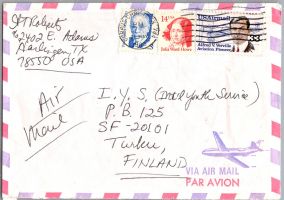 J T Roberts
2402 E. Adams
Harlingen, TX
78550 USA
14 USA
Julia Ward Howe
USAirmail
Alfred V. Verville
Aviation Pioneer
33
Air
Mail
I.Y.S (Int'l Youth Service)
P.B. 125
SF-20101
Turku,
FINLAND
VIA AIR MAIL
PAR AVION